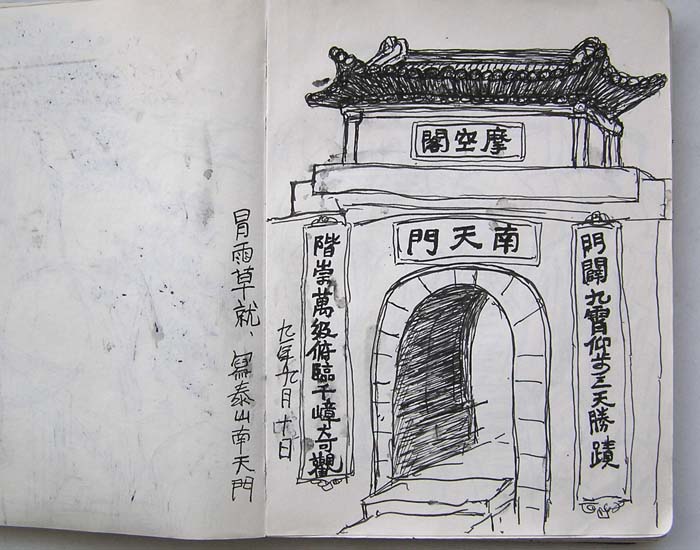 摩空閣
南天門
門闢九霄仰步三天勝蹟
階崇萬級俯臨千嶂奇觀
九年九月十日
冒雨草就、寫泰山南天門